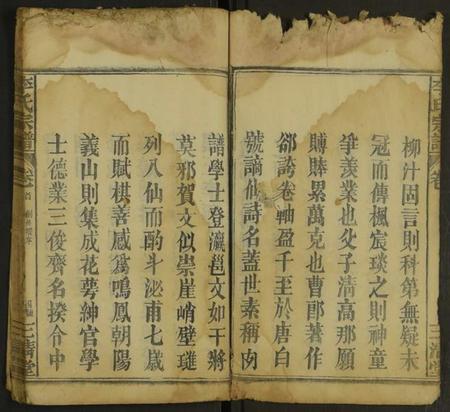 柳汁固言則科第無疑未
冠而傳楓宸琰之則神童
爭羨業也父子清高那願
賻賻累萬克也曹郎著作
郤謗卷軸盈千至於唐白
號謫仙詩名蓋世素稱肉
譜學士登瀛邕文如干將
莫邪賀文似崇崖峭壁璡
列八仙而酌斗泌甫七歲
而賦棋善感爲鳴鳳朝陽
義山則集成花萼紳官學
士德業三俊齊名揆令中
李氏宗譜 卷
三清堂